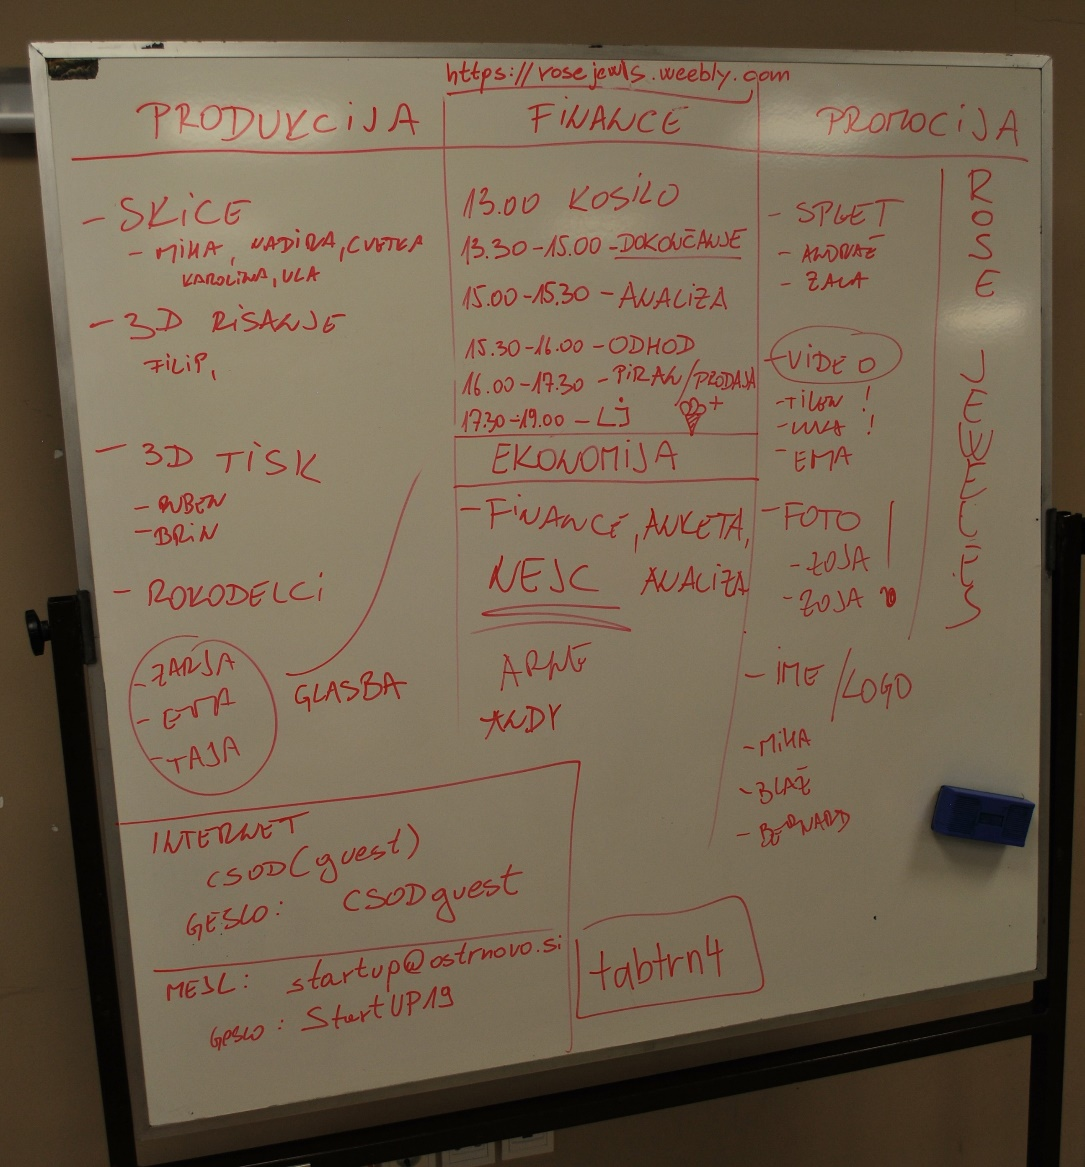 https://rosejewls.weebly.com
PRODUKCIJA
- SKICE
- MIHA, NADIRA, CVETKA
KAROLINA, ULA
- 3D RISANJE
FILIP,
- 3D TISK
- RUBEN
- BRIN
- ROKODELCI
- ZARJA
- EMA
- TAJA
GLASBA
FINANCE
13.00 KOSILO
13.30-15.00 - DOKONČANJE
15.00-15.30 - ANALIZA
15.30-16.00 - ODHOD
16.00-17.30 - PIRAN/PRODAJA
17.30-19.00 - LJ +
EKONOMIJA
- FINANCE, ANKETA,
NEJC ANALIZA
ARNE
ANDY
PROMOCIJA
- SPLET
- ANDRAŽ
- ZALA
- VIDEO
- TILEN !
- LUKA !
- EMA
- FOTO
- ZOJA
- ZOJA
- IME / LOGO
- MIHA
- BLAŽ
- BERNARD
ROSE JEWELES
INTERNET
CSOD(guest)
GESLO: CSODguest
MEJL: startup@ostrnovo.si
GESLO: StartUP19
tabtrn4